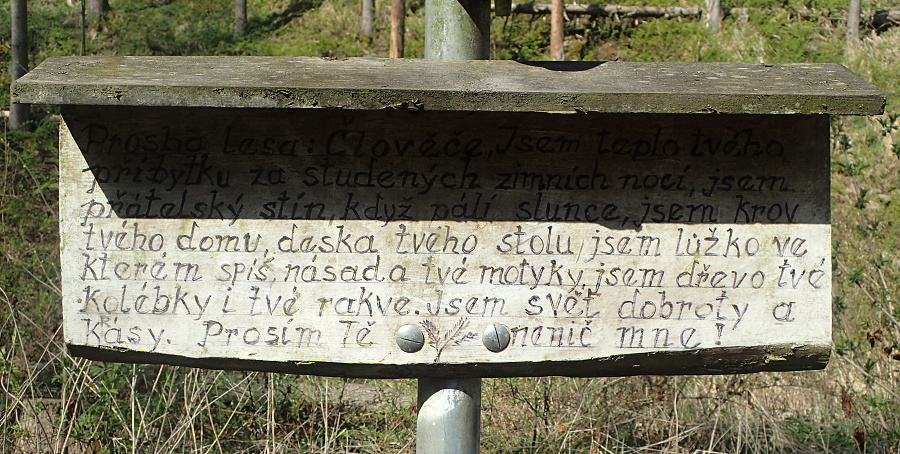 Prosba lesa: Člověče, Jsem teplo tvého
příbytku za studených zimních nocí, jsem
přátelský stín, když pálí slunce, jsem krov
tvého domu, deska tvého stolu, jsem lůžko ve
kterém spíš, násada tvé motyky, jsem dřevo tvé
kolébky i tvé rakve. Jsem svět dobroty a
KRásy. Prosím Tě nenič mne!